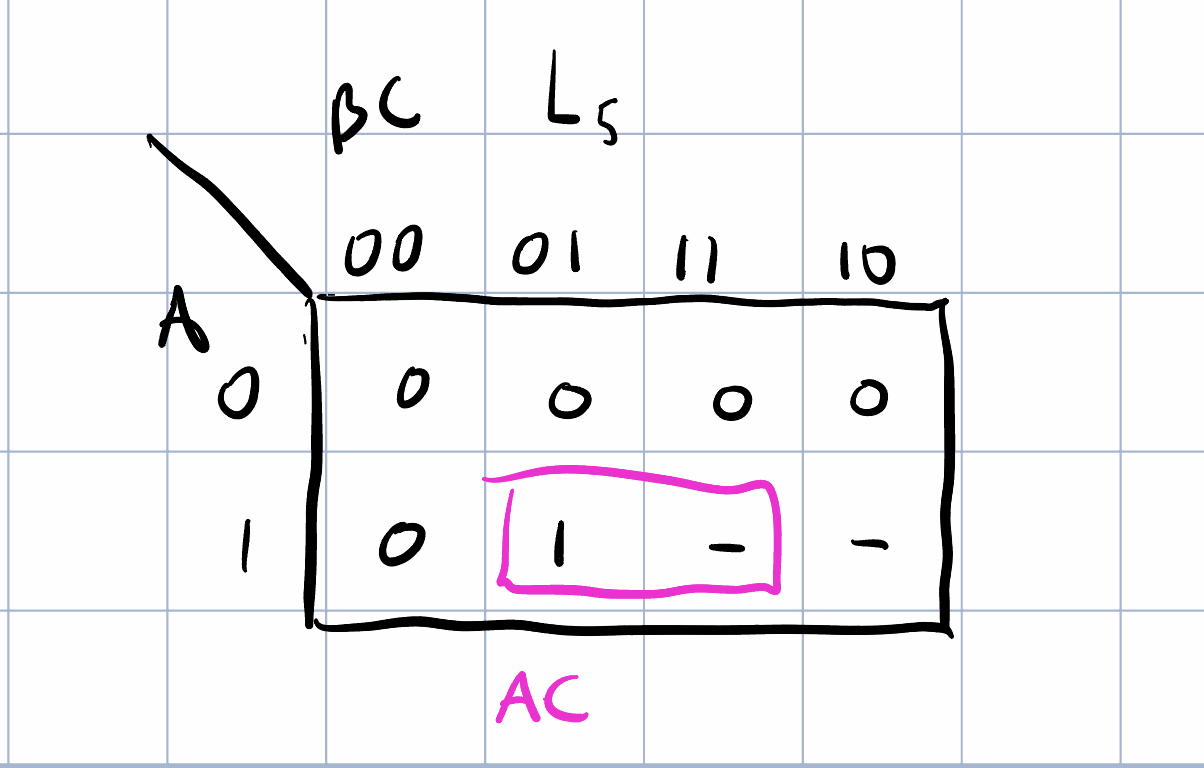 BC L5
00 01 11 10
A
0 0 0 0 0
1 0 1 - -
AC